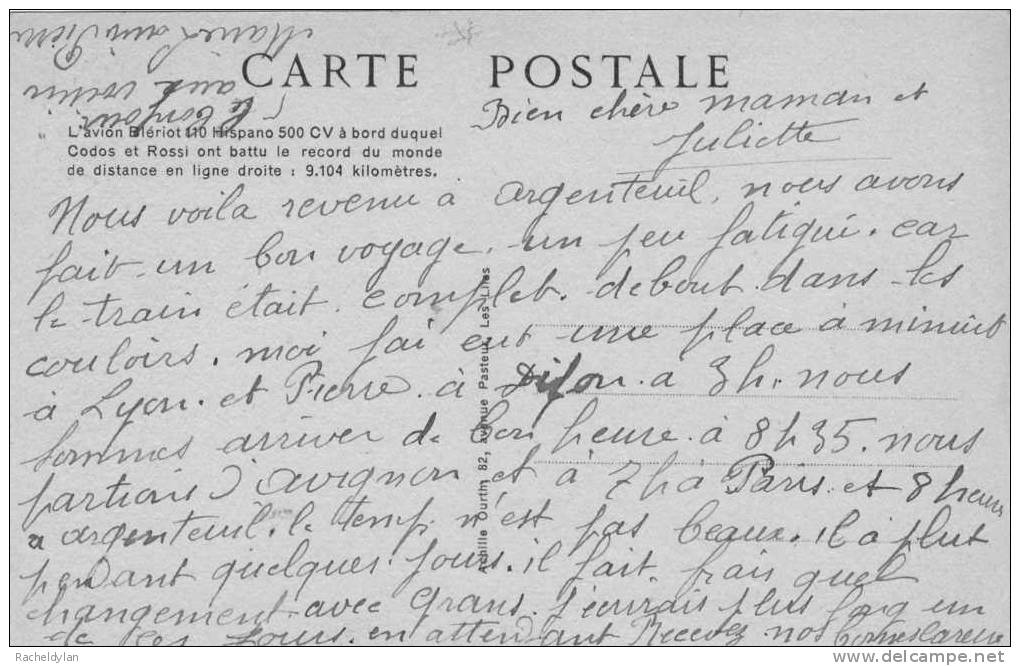 CARTE POSTALE
L'avion Blériot 110 Hispano 500 CV à bord duquel
Codos et Rossi ont battu le record du monde
de distance en ligne droite : 9.104 kilomètres.
Bien chère maman et
Juliette
Nous voila revenu à argenteuil, nous avons
fait un bon voyage. un peu fatigué. car
le train était complet. debout dans les
couloirs. moi j'ai eut une place à minuit
à Lyon. et Pierre à Dijon a 3h. nous
sommes arriver de bon heure à 8h35. nous
partions d'avignon et à 7h à Paris et 8 heures
a argenteuil. le temp n'est pas beaux. il a plut
pendant quelques jours. il fait frais quel
changement avec Grans. j'écrirais plus long un
de ces jours. en attendant Recevez nos bonnes
le bonjour
aux voisin
Marie Louis Pierre
Achille Ourtin 82, Avenue Pasteur Les Lilas
Racheldylan
delcampe.net